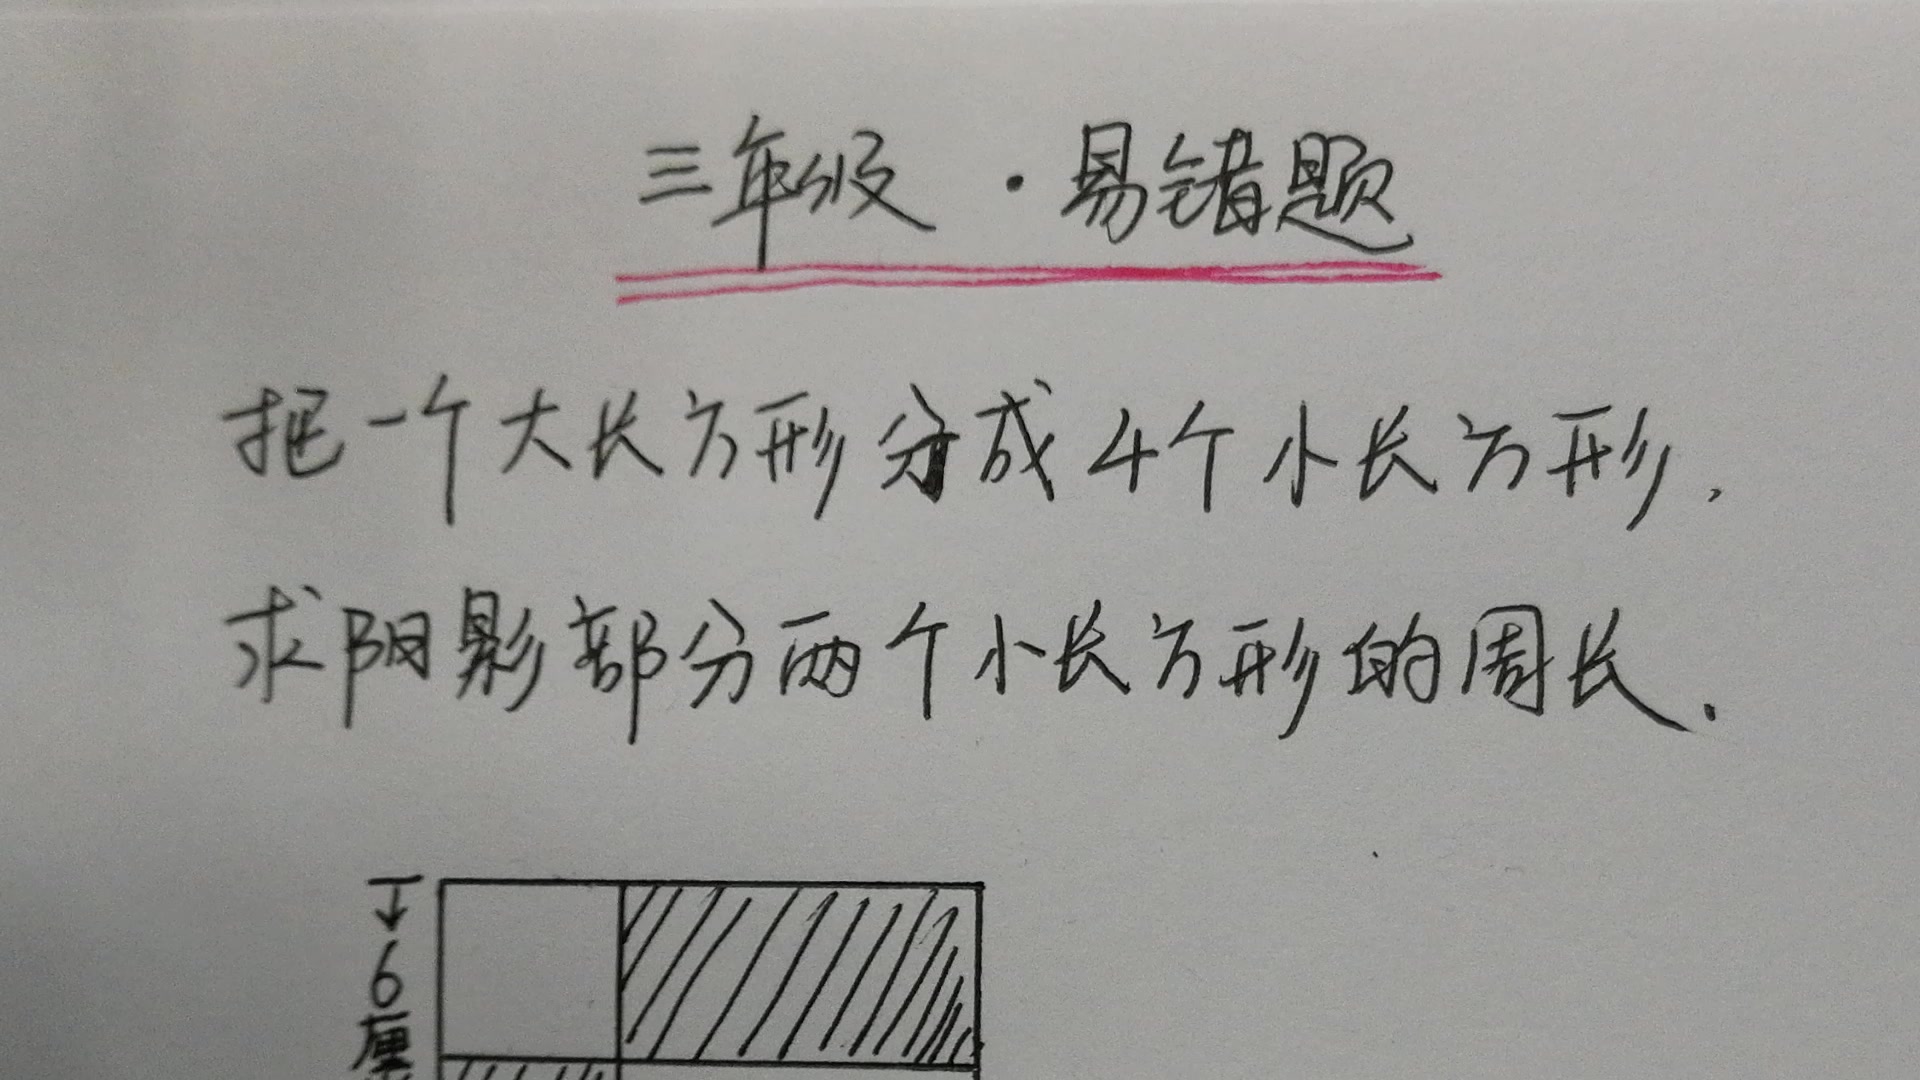 三年级·易错题
把一个大长方形分成4个小长方形，
求阴影部分两个小长方形的周长．
6
厘